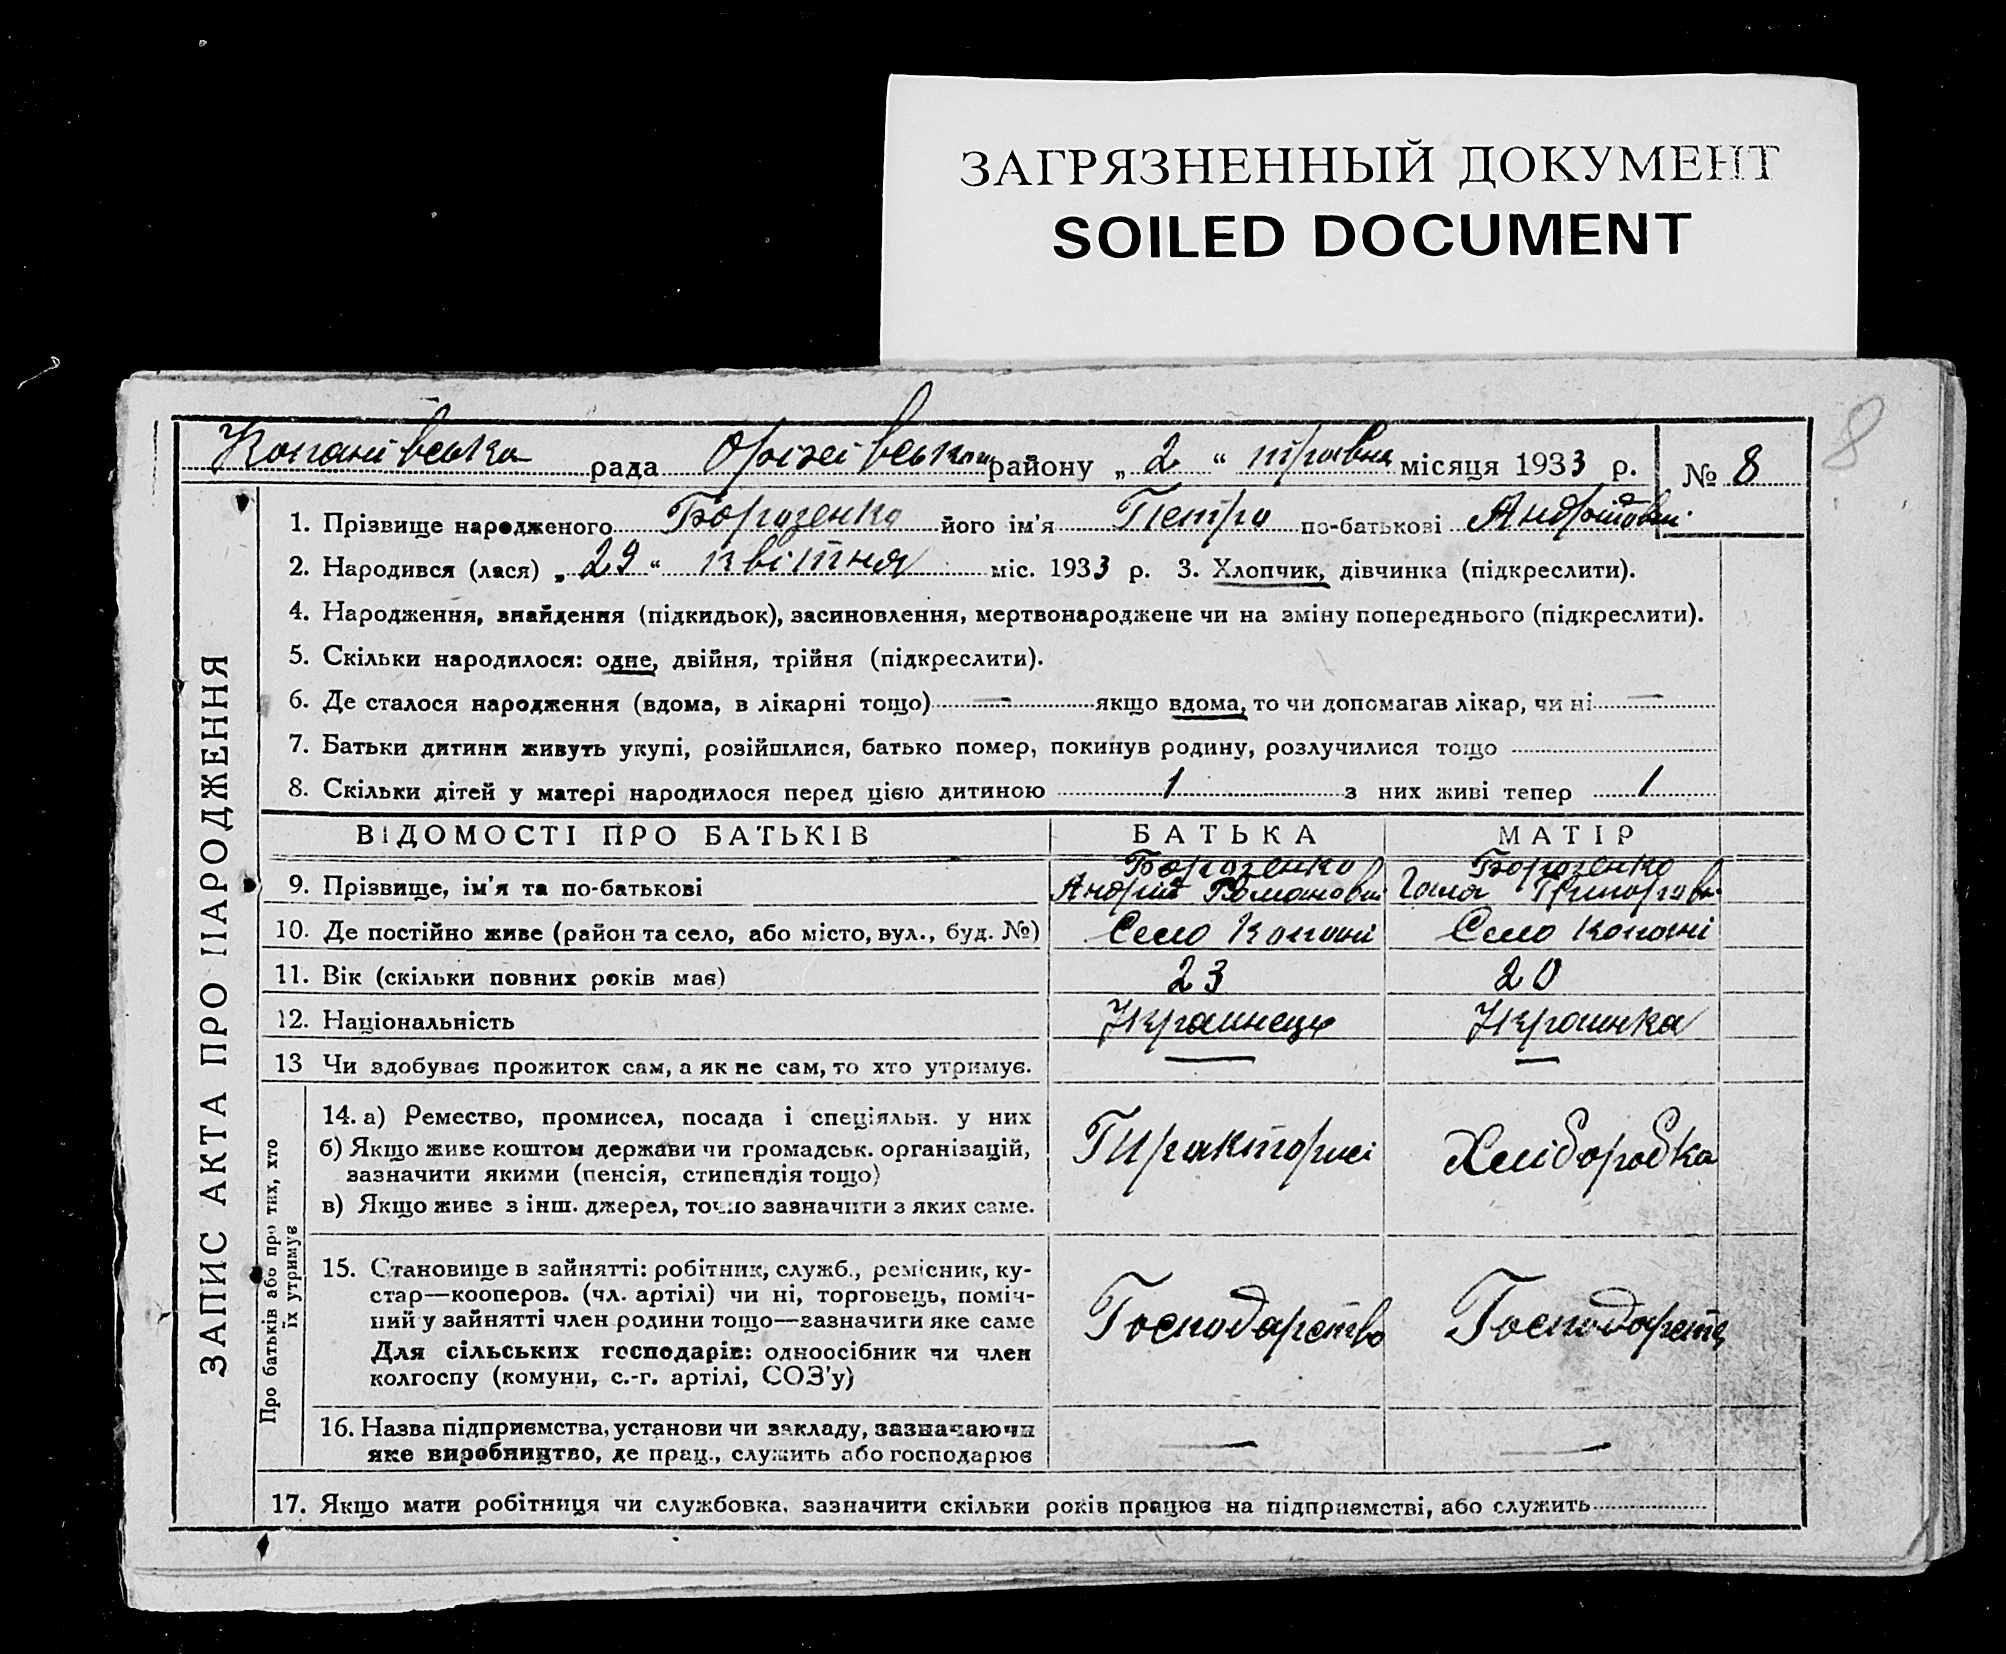 ЗАГРЯЗНЕННЫЙ ДОКУМЕНТ
SOILED DOCUMENT
8
Копанівська рада Оріхівського району „2“ травня місяця 1933 р. № 8
ЗАПИС АКТА ПРО НАРОДЖЕННЯ
1. Прізвище народженого Борозенко його ім'я Петро по-батькові Андрійович
2. Народився (лася) „29“ квітня міс. 1933 р. 3. Хлопчик, дівчинка (підкреслити).
4. Народження, знайдення (підкидьок), засиновлення, мертвонароджене чи на зміну попереднього (підкреслити).
5. Скільки народилося: одне, двійня, трійня (підкреслити).
6. Де сталося народження (вдома, в лікарні тощо) — якщо вдома, то чи допомагав лікар, чи ні —
7. Батьки дитини живуть укупі, розійшлися, батько помер, покинув родину, розлучилися тощо
8. Скільки дітей у матері народилося перед цією дитиною 1 з них живі тепер 1
ВІДОМОСТІ ПРО БАТЬКІВ БАТЬКА МАТІР
9. Прізвище, ім'я та по-батькові Борозенко Андрій Романович Борозенко Галя Григорівн
10. Де постійно живе (район та село, або місто, вул., буд. №) Село Копані Село Копані
11. Вік (скільки повних років має) 23 20
12. Національність Украинець Украинка
13 Чи здобуває прожиток сам, а як не сам, то хто утримує. — —
Про батьків або про тих, хто
їх утримує
14. а) Ремество, промисел, посада і спеціяльн. у них
б) Якщо живе коштом держави чи громадськ. організацій,
зазначити якими (пенсія, стипендія тощо)
в) Якщо живе з інш. джерел, точно зазначити з яких саме.
Хліборобка
15. Становище в зайнятті: робітник, служб., ремісник, ку-
стар—кооперов. (чл. артілі) чи ні, торговець, поміч-
ний у зайнятті член родини тощо—зазначити яке саме
Для сільських господарів: одноосібник чи член
колгоспу (комуни, с.-г. артілі, СОЗ'у)
Господарство Господарств
16. Назва підприємства, установи чи закладу, зазначаючи
яке виробництво, де прац., служить або господарює — —
17. Якщо мати робітниця чи службовка, зазначити скільки років працює на підприємстві, або служить